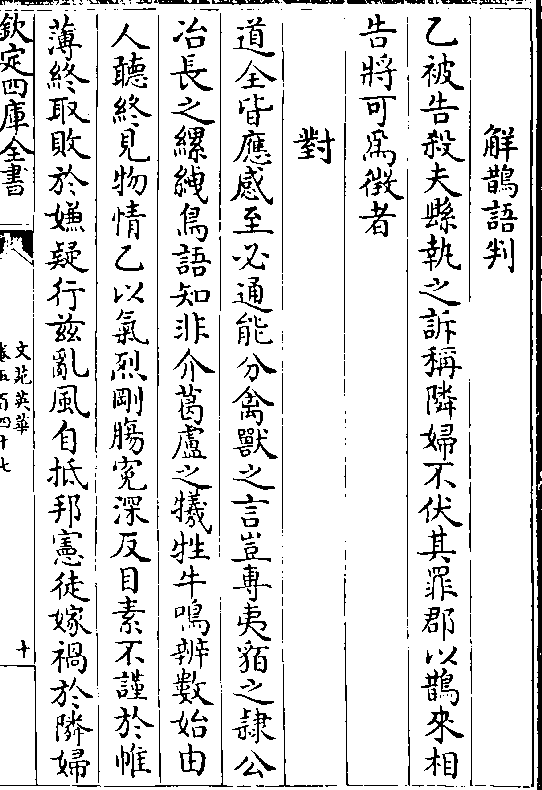 解鵲語判
乙被告殺夫縣執之訴稱隣婦不伏其罪郡以鵲來相
告將可為徴者
對
道全皆應感至必通能分禽獸之言豈專夷貊之隷公
冶長之縲絏鳥語知非介葛盧之犧牲牛鳴辨數始由
人聽終見物情乙以氣烈剛膓寃深反目素不謹於帷
薄終取敗於嫌疑行兹亂風自抵邦憲徒嫁禍於隣婦
欽定四庫全書
文苑英華
卷五百四十七
十